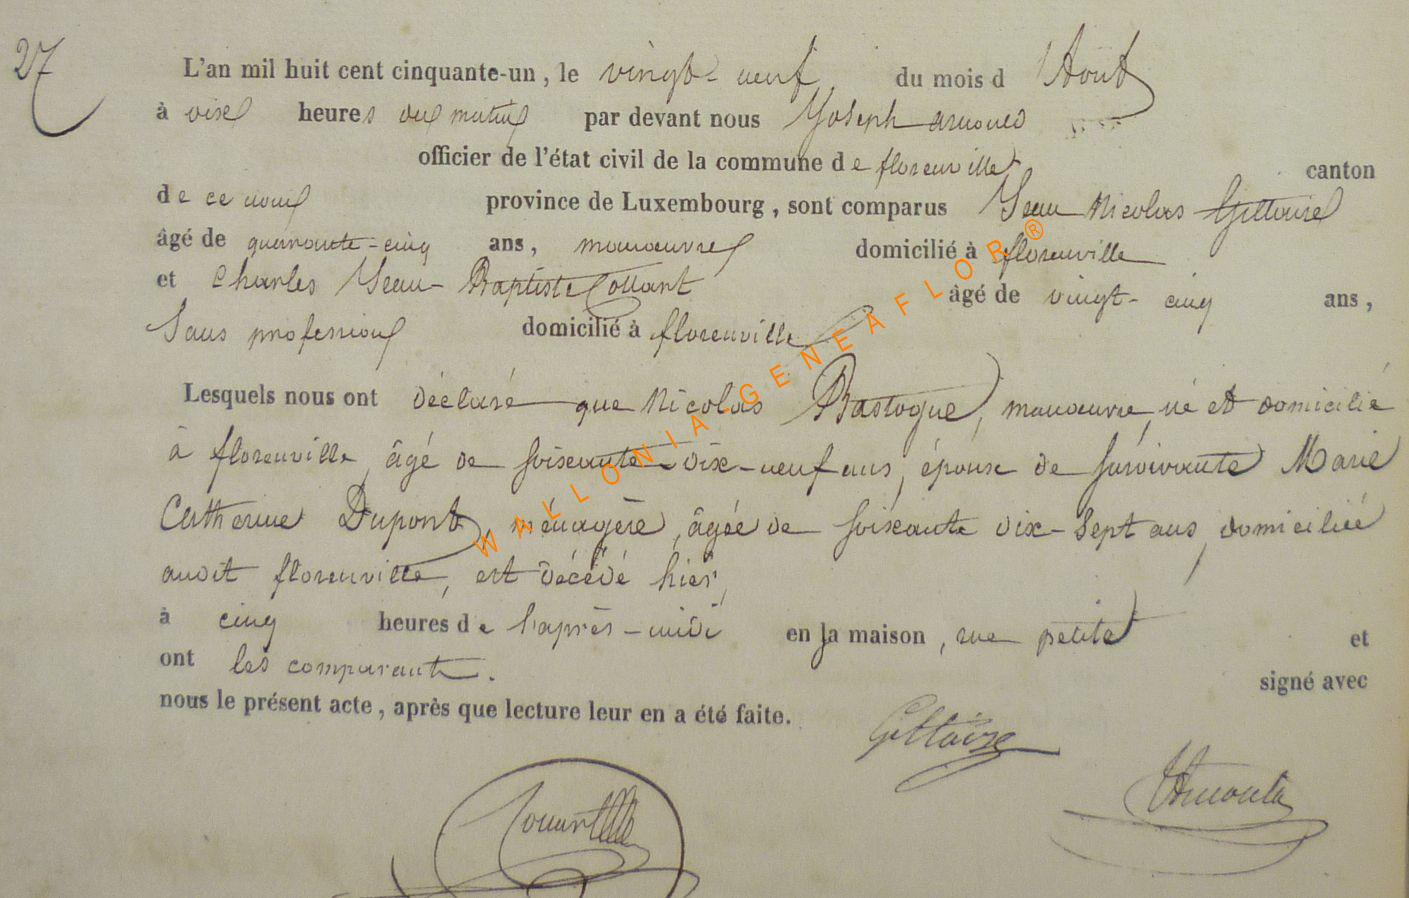 27
L'an mil huit cent cinquante-un, le vingt-neuf du mois d'Aout
à dix heures du matin par devant nous Joseph arnould
officier de l'état civil de la commune de florenville canton
de ce nom province de Luxembourg, sont comparus Jean Nicolas Gillaire
âgé de quarante-cinq ans, manœuvre domicilié à florenville
et Charles Jean-Baptiste Collart âgé de vingt-cinq ans,
Sans profession domicilié à florenville
Lesquels nous ont déclaré que Nicolas Bastogne, manœuvre, né et domicilié
à florenville, âgé de soixante-dix-neuf ans, époux de survivante Marie
Catherine Dupont, ménagère, âgée de soixante dix-sept ans, domiciliée
audit florenville, est décédé hier,
à cinq heures de l'après-midi en la maison, rue petite et
ont les comparants. signé avec
nous le présent acte, après que lecture leur en a été faite.
WALLONIA-GENEAFLOR®